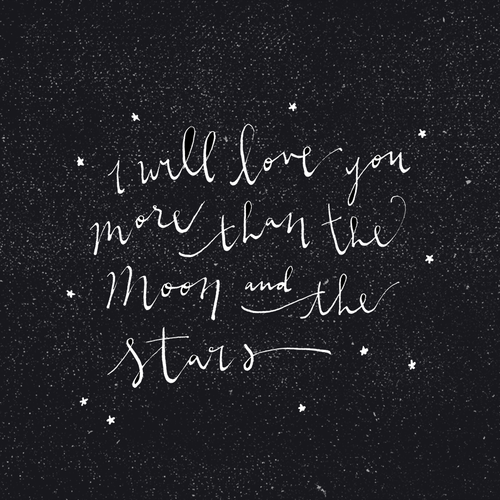 I will love you
more than the
Moon and the
stars